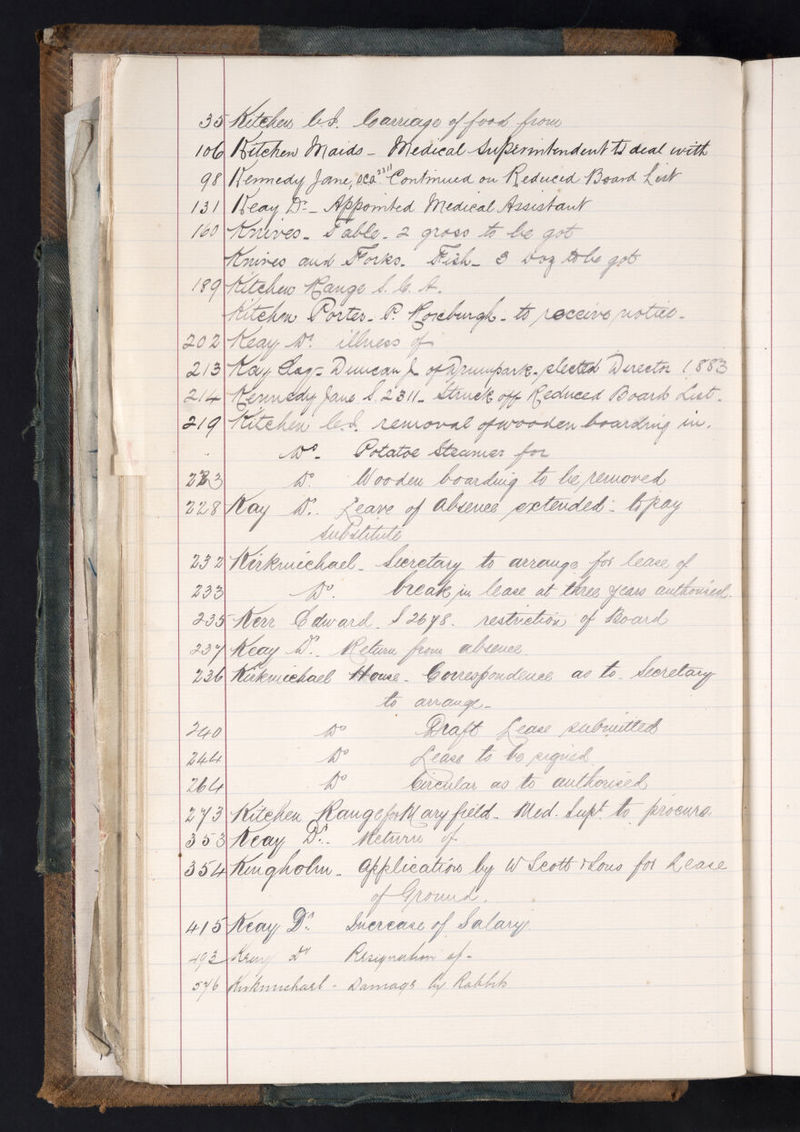 35 Kitchen C.I. Carriage of food from
106 Kitchen Maids - Medical Superintendent to deal with
98 Kennedy Jane, 2311 Continued on Reduced Board List
131 Keay Dr - Appointed Medical Assistant
160 Knives - Table - 2 gross to be got
Knives and Forks - Fish - 3 Doz to be got
189 Kitchen Range S.C.A.
Kitchen Porter - P. Roxburgh - to receive notice -
202 Keay Dr illness of
213 Kay Esq - Duncan J of Drumpark - elected Director 1883
214 Kennedy Jane S 2311 - Struck off Reduced Board List -
219 Kitchen C.I. removal of wooden boarding in.
" Do Potatoe Steamer for
223 Do Wooden boarding to be removed
228 Kay Dr. Leave of Absence extended : to pay
substitute
232 Kirkmichael - Secretary to arrange for lease of
233 Do. break in lease at three years authorised.
235 Kerr Edward S 2678. restriction of Board
237 Keay Dr. Return from absence
236 Kirkmichael House - Correspondence as to - Secretary
to arrange -
240 Do Draft Lease submitted
244 Do Lease to be signed
264 Do Circular as to authorised
273 Kitchen Range for Maryfield - Med. Supt. to procure
353 Keay Dr. Return of
354 Kingholm - Application by W Scott & Sons for Lease
of Ground.
415 Keay Dr Increase of Salary
493 Keay Dr Resignation of -
576 Kirkmichael - Damage by Rabbits